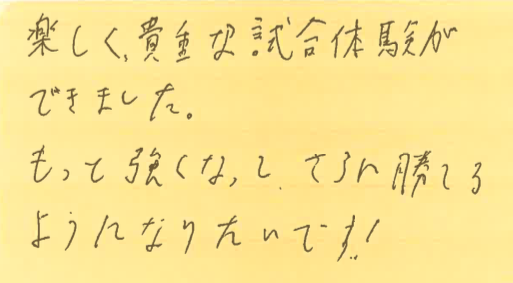 楽しく、貴重な試合体験が
できました。
もっと強くなって、さらに勝てる
ようになりたいです!